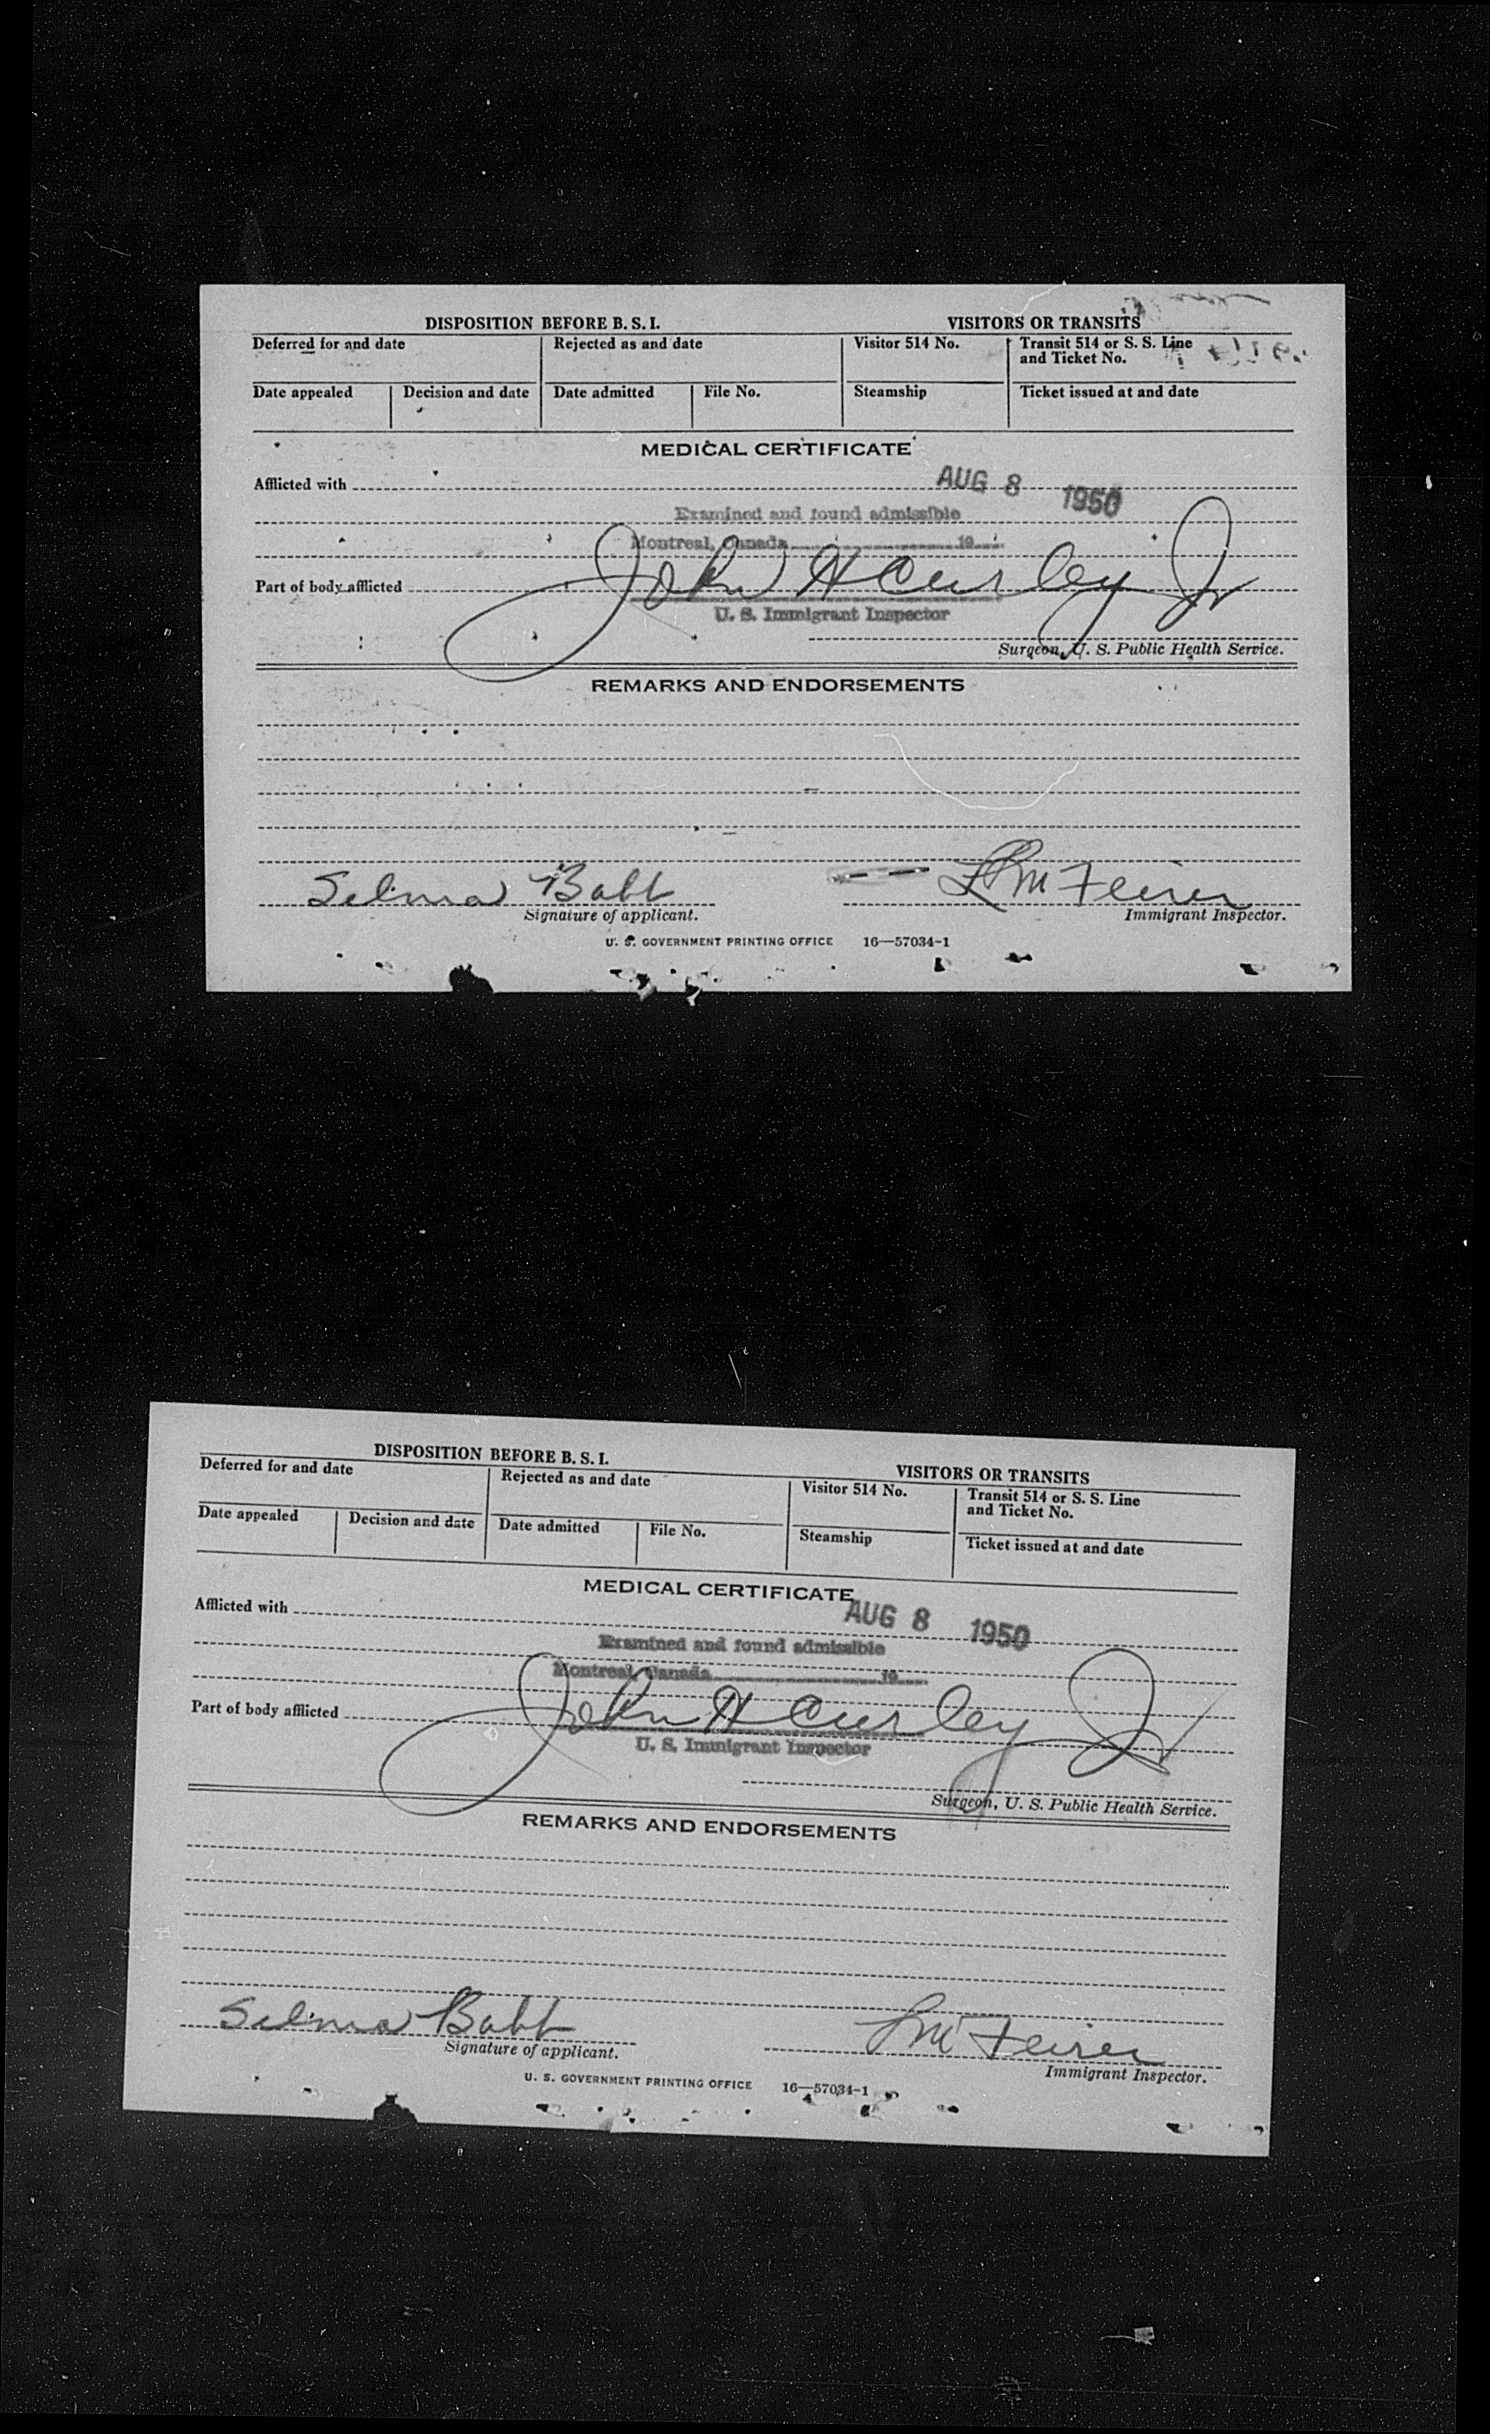 DISPOSITION BEFORE B. S. I.
VISITORS OR TRANSITS
Deferred for and date
Rejected as and date
Visitor 514 No.
Transit 514 or S. S. Line
and Ticket No.
Date appealed
Decision and date
Date admitted
File No.
Steamship
Ticket issued at and date
MEDICAL CERTIFICATE
Afflicted with
AUG 8 1950
Examined and found admissible
Montreal, Canada 19
Part of body afflicted
John H Curley Jr
U. S. Immigrant Inspector
Surgeon, U. S. Public Health Service.
REMARKS AND ENDORSEMENTS
Selma Babb
Signature of applicant.
Immigrant Inspector.
U. S. GOVERNMENT PRINTING OFFICE 16—57034-1
DISPOSITION BEFORE B. S. I.
VISITORS OR TRANSITS
Deferred for and date
Rejected as and date
Visitor 514 No.
Transit 514 or S. S. Line
and Ticket No.
Date appealed
Decision and date
Date admitted
File No.
Steamship
Ticket issued at and date
MEDICAL CERTIFICATE
Afflicted with
AUG 8 1950
Examined and found admissible
Montreal, Canada 19
Part of body afflicted
John H Curley Jr
U. S. Immigrant Inspector
Surgeon, U. S. Public Health Service.
REMARKS AND ENDORSEMENTS
Selma Babb
Signature of applicant.
Immigrant Inspector.
U. S. GOVERNMENT PRINTING OFFICE 16—57034-1